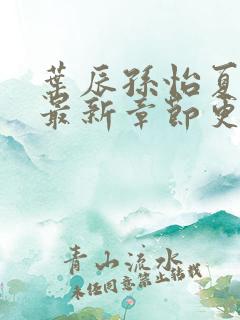 叶辰孙怡夏
最新章节更
青山流水
未经同意禁止转载